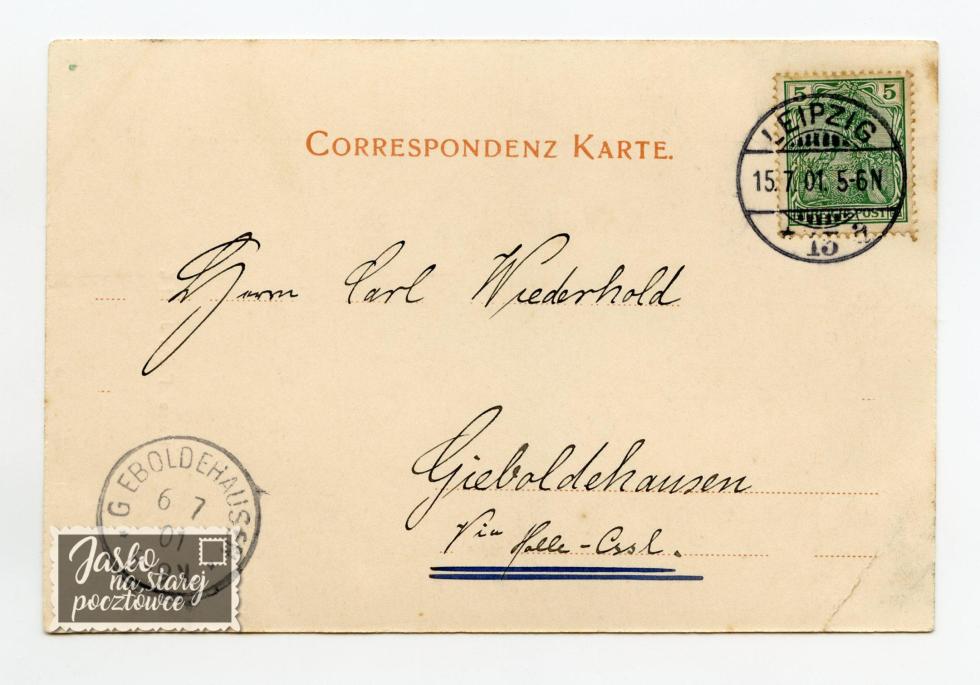 CORRESPONDENZ KARTE.
5 5
LEIPZIG
15.7.01. 5-6N
15
Herrn Carl Wiederhold
Gieboldehausen
Via Halle-Cssl.
GIEBOLDEHAUS
6 7
01
Jasło
na starej
pocztówce